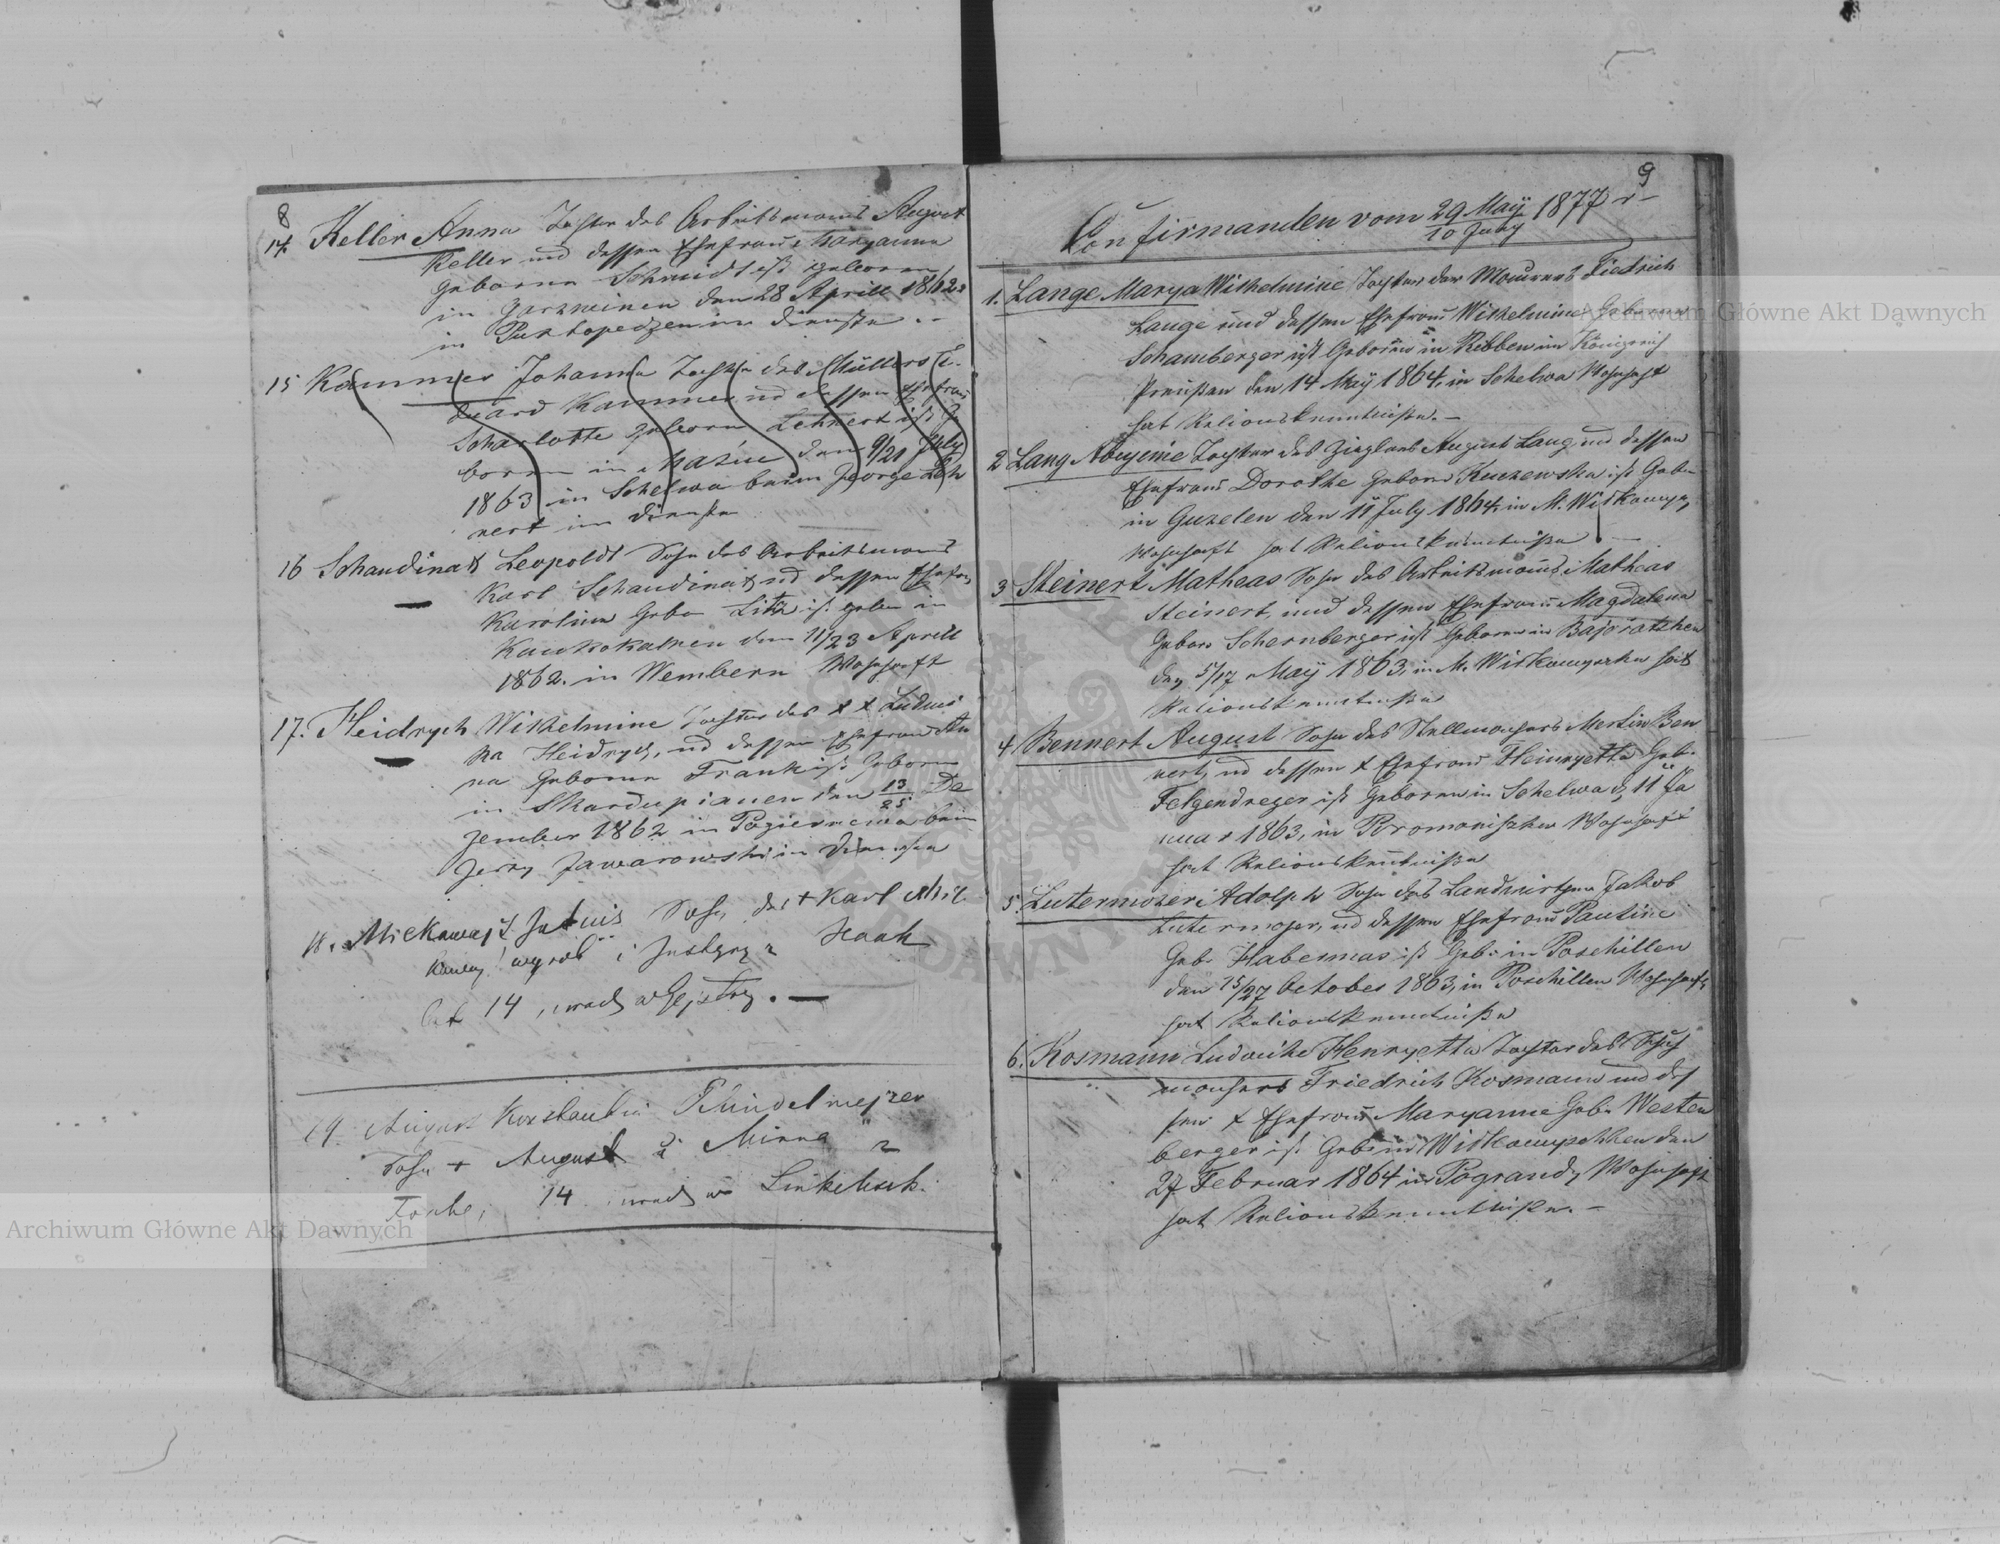 8
14. Keller Anna Tochter des Arbeitsmanns August
Keller und dessen Ehefrau Maryanna
geborne Schmidt ist geboren
in Garzwinen den 28 Aprill 1862
in dienste
15 Kammer Johanna Tochter des Müllers E.
duard Kammer und dessen Ehefrau
Scharlotte geborn Lehnert ist ge
boren in Maziu den 9/21 July
1863 in Schelwa beim George Leh
nert im dienste
16 Schaudinat Leopoldt Sohn des Arbeitsmanns
Karl Schaudinat und dessen Ehefr
Karolina Gebor ist gebor in
den 11/23 Aprill
1862. in Wembern Wohnhaft
17. Heidrych Wilhelmine Tochter des Ludwi
ka Heidrych, und dessen Ehefrau An
na geborne Frank ist geboren
in Skardupianen den 13/25 De
zember 1862 in beim
Jerzy Jawarowski in diensten
18. Sohn des + Karl Mic
i Justyny
Haak
14
19. August Schindelmejzer
Sohn + August & Minna
14
9
Confirmanden vom 29 May/10 Juny 1877 r-
1. Lange Marya Wilhelmine Tochter des Maurers Fiedrich
Lange und dessen Ehefrau Wilhelmine Geborne
Schamberger ist Geboren in Ribben im Königreich
Preußen den 14 May 1864, in Schelwa Wohnhaft
hat Relionskenntniße.-
2 Lang Tochter des Zieglers August Lang und dessen
Ehefrau Dorothe Geborn ist Gebo
in Guzelen den 11 July 1864, in M. Wiskowyz,
Wohnhaft hat Relionskenntniße -
3 Steinert Matheas Sohn des Arbeitsmanns Matheas
Steinert, und dessen Ehefrau Magdalena
Gebor Schernberger ist Geboren in Bajoratzhen
den 5/17 May 1863, in M. hat
Relionskenntniße
4 Bennert August Sohn des Stellmachers Mertin Ben
nert, und dessen + Ehefrau Heinryetta Geb.
Felgendreger ist Geboren in Schelwa d, 11 Ja
nuar 1863, in Wohnhaft
hat Relionskentniße
5. Lutermozer Adolph Sohn des Landwirthen Jakob
Lutermozer, und dessen Ehefrau Pauline
Geb. Habermas ist Geb. in Poschillen
den 15/27 October 1863, in Poschillen Wohnhaft,
hat Relionskenntniße
6. Kosmann Ludwike Henryetta Tochter des Schuh
machers Friedrich Kosmann und des
sen + Ehefrau Maryanne Geb. Westen
berger ist Geb. in den
27 Februar 1864 in Pogrand, Wohnhaft
hat Relionskenntniße.-
Archiwum Główne Akt Dawnych
Archiwum Główne Akt Dawnych